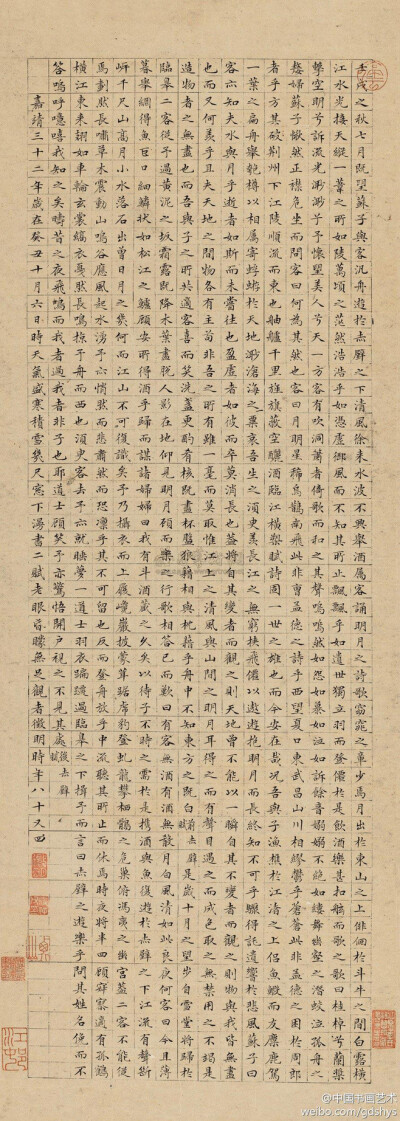 壬戌之秋七月既望蘇子與客汎舟遊於赤壁之下清風徐来水波不興舉酒属客誦明月之詩歌窈窕之章少焉月出於東山之上徘徊於斗牛之間白露横
江水光接天縱一葦之所如陵萬頃之茫然浩浩乎如憑虚御風而不知其所止飄飄乎如遺世獨立羽而登僊於是飲酒樂甚扣舷而歌之歌曰桂棹兮蘭槳
擊空明兮訴流光渺渺兮予懷望美人兮天一方客有吹洞簫者倚歌而和之其聲嗚嗚然如怨如慕如泣如訴餘音嫋嫋不絶如縷舞幽壑之潛蛟泣孤舟之
嫠婦蘇子愀然正襟危坐而問客曰何為其然也客曰月明星稀烏鵲南飛此非曹孟德之詩乎西望夏口東武昌山川相繆鬱乎蒼蒼此非孟德之困於周郎
者乎方其破荆州下江陵順流而東也舳艫千里旌旗蔽空釃酒臨江横槊賦詩固一世之雄也而今安在哉况吾與子漁樵於江渚之上侣魚鰕而友麋鹿駕
一葉之扁舟舉匏樽以相属寄蜉蝣於天地渺滄海之一粟哀吾生之須臾羨長江之無窮挾飛僊以遨遊抱明月而長終知不可乎驟得託遺響於悲風蘇子曰
客亦知夫水與月乎逝者如斯而未嘗往也盈虚者如彼而卒莫消長也蓋將自其變者而觀之則天地曾不能以一瞬自其不變者而觀之則物與我皆無盡
也而又何羨乎且夫天地之間物各有主苟非吾之所有雖一毫而莫取惟江上之清風與山間之明月耳得之而有聲目遇之而成色取之無禁用之不竭是
造物者之無盡藏也而吾與子之所共適客喜而笑洗盞更酌肴核既盡杯盤狼藉相與枕藉乎舟中不知東方之既白 前赤壁賦 是歲十月之望步自雪堂將歸於
臨皋二客從予過黄泥之坂霜露既降木葉盡脱人影在地仰見明月顧而樂之行歌相答已而歎曰有客無酒有酒無殽月白風清如此良夜何客曰今且薄
暮舉網得魚巨口細鱗狀如松江之鱸顧安所得酒乎歸而謀諸婦婦曰我有斗酒藏之久矣以待子不時之需於是携酒與魚復遊於赤壁之下江流有聲斷
岍千尺山高月小水落石出曾日月之幾何而江山不可復識矣予乃攝衣而上履巉巖披蒙茸踞虎豹登虬龍攀栖鶻之危巢俯馮夷之幽宫蓋二客不能從
焉劃然長嘯草木震動山鳴谷應風起水湧予亦悄然而悲肅然而恐凛乎其不可留也反而登舟放乎中流聽其所止而休焉時夜將半四顧寂寥適有孤鶴
横江東来翅如車輪玄裳縞衣戛然長鳴掠予舟而西也須臾客去予亦就睡夢一道士羽衣蹁躚過臨皋之下揖予而言曰赤壁之遊樂乎問其姓名俛而不
答嗚呼噫嘻我知之矣疇昔之夜飛鳴而我過者我非子也耶道士顧笑予亦驚悟開户視之不見其處 後赤壁賦
嘉靖三十二年歲在癸丑十月六日時天氣盛寒積雪幾尺窓下漫書二賦老眼昏矇無足觀者徵明時年八十又四
江邨
@中国书画艺术
weibo.com/gdshys